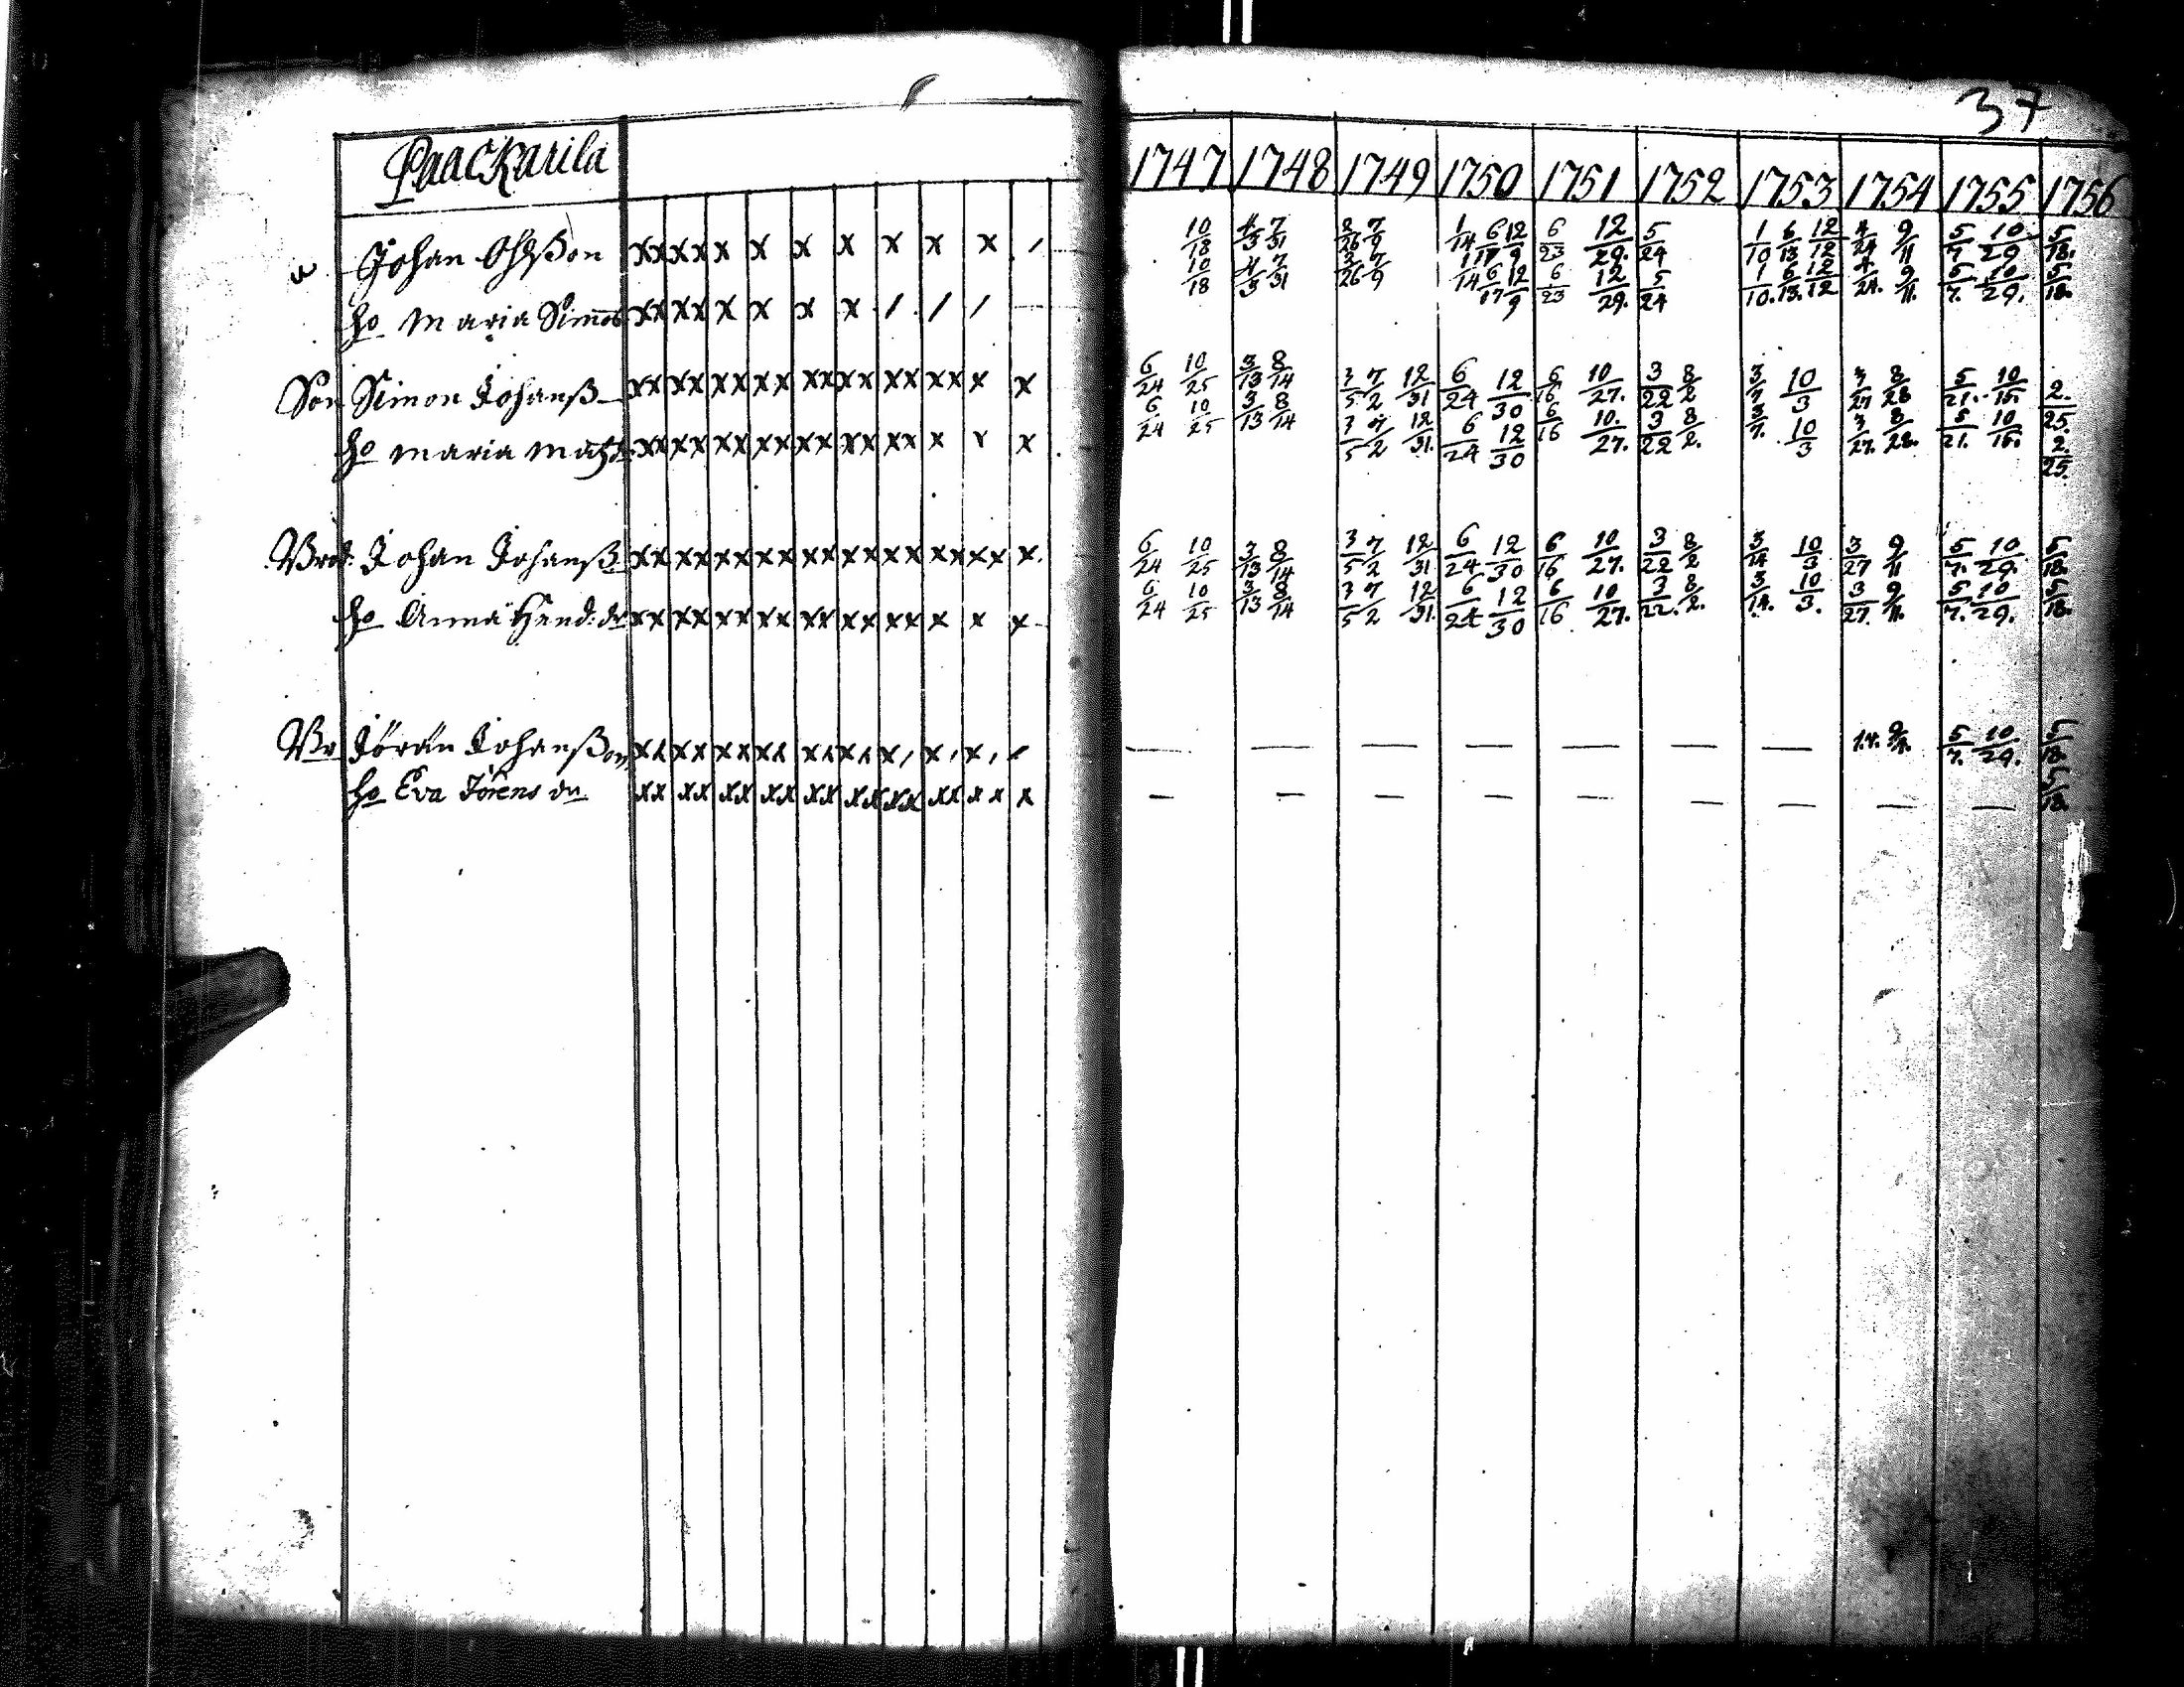 37
Paackarila 1747 1748 1749 1750 1751 1752 1753 1754 1755 1756
Johan xx xx x x x x x x x / 10/18 4/3 7/31 7/9 1/14 6/17 12/9 6/23 12/29. 5/24 1/10 6/13 12/12 4/24 9/11 5/7 10/29 5/18.
ho Maria xx xx x x x x / / / 10/18 4/3 7/31 3/26 7/9 1/14 6/17 12/9 6/23 12/29. 5/24 1/10. 6/13. 12/12 4/24. 9/11. 5/7. 10/29. 5/18.
Son Simon Johanß xx xx xx xx xx xx xx xx x x 6/24 10/25 3/13 8/14 3/5 7/2 12/31 6/24 12/30 6/16 10/27. 3/22 8/2 3/7 10/3 3/27 8/28 5/21. 10/15. 2./25.
ho Maria xx xx xx xx xx xx xx x x x 6/24 10/25 3/13 8/14 3/5 7/2 12/31. 6/24 12/30 6/16 10./27. 3/22 8/2. 3/7. 10/3 3/27. 8/28. 5/21. 10/15. 2./25.
Johan Johanß xx xx xx xx xx xx xx xx xx x. 6/24 10/25 3/13 8/14 3/5 7/2 12/31 6/24 12/30 6/16 10/27. 3/22 8/2 3/14 10/3 3/27 9/11 5/7. 10/29. 5/18.
ho Anna Hend: dr xx xx xx xx xx xx xx x x x 6/24 10/25 3/13 8/14 3/5 7/2 12/31. 6/24 12/30 6/16 10/27. 3/22. 8/2. 3/14. 10/3. 3/27. 9/11. 5/7. 10/29. 5/18.
Jöran Johanßon — — — — — — — 5/7. 10/29. 5/18
ho Eva Jörens dr xx xx xx xx xx xx xx xx xx x — — — — — — — — — 5/18